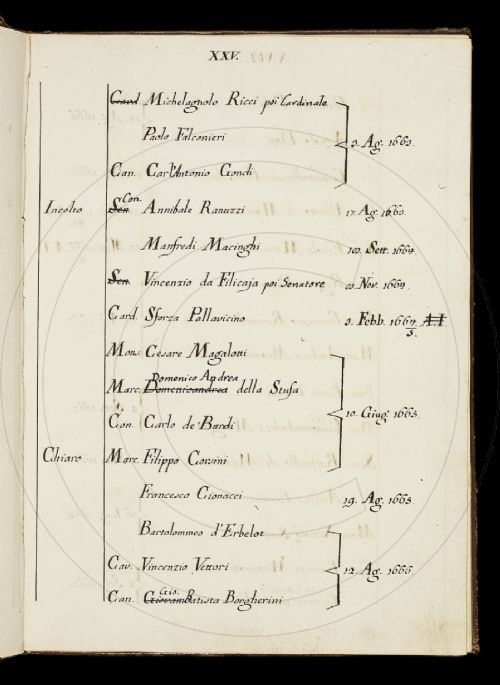 XXV.
Card. Michelagnolo Ricci poi Cardinale
Paolo Falconieri
3. Ag. 1663.
Can. Carl'Antonio Gondi
Incolto Sen Con. Annibale Ranuzzi 17. Ag. 1663.
Manfredi Macinghi Sett. 1664.
Sen Vincenzio da Filicaja poi Senatore Nov. 1664.
Card. Sforza Pallavicino 3. Febb. 1664 5. A.I.
Mons. Cesare Magalotti
Marc. Domenisandrea Domenico Andrea della Stufa
10. Giug. 1665.
Con. Carlo de' Bardi
Chiaro Marc. Filippo Corsini
Francesco Cionacci 19. Ag. 1665.
Bartolommeo d'Erbelot
Cav. Vincenzio Vettori 12. Ag. 1666.
Can. Giovam Gio. Batista Borgherini